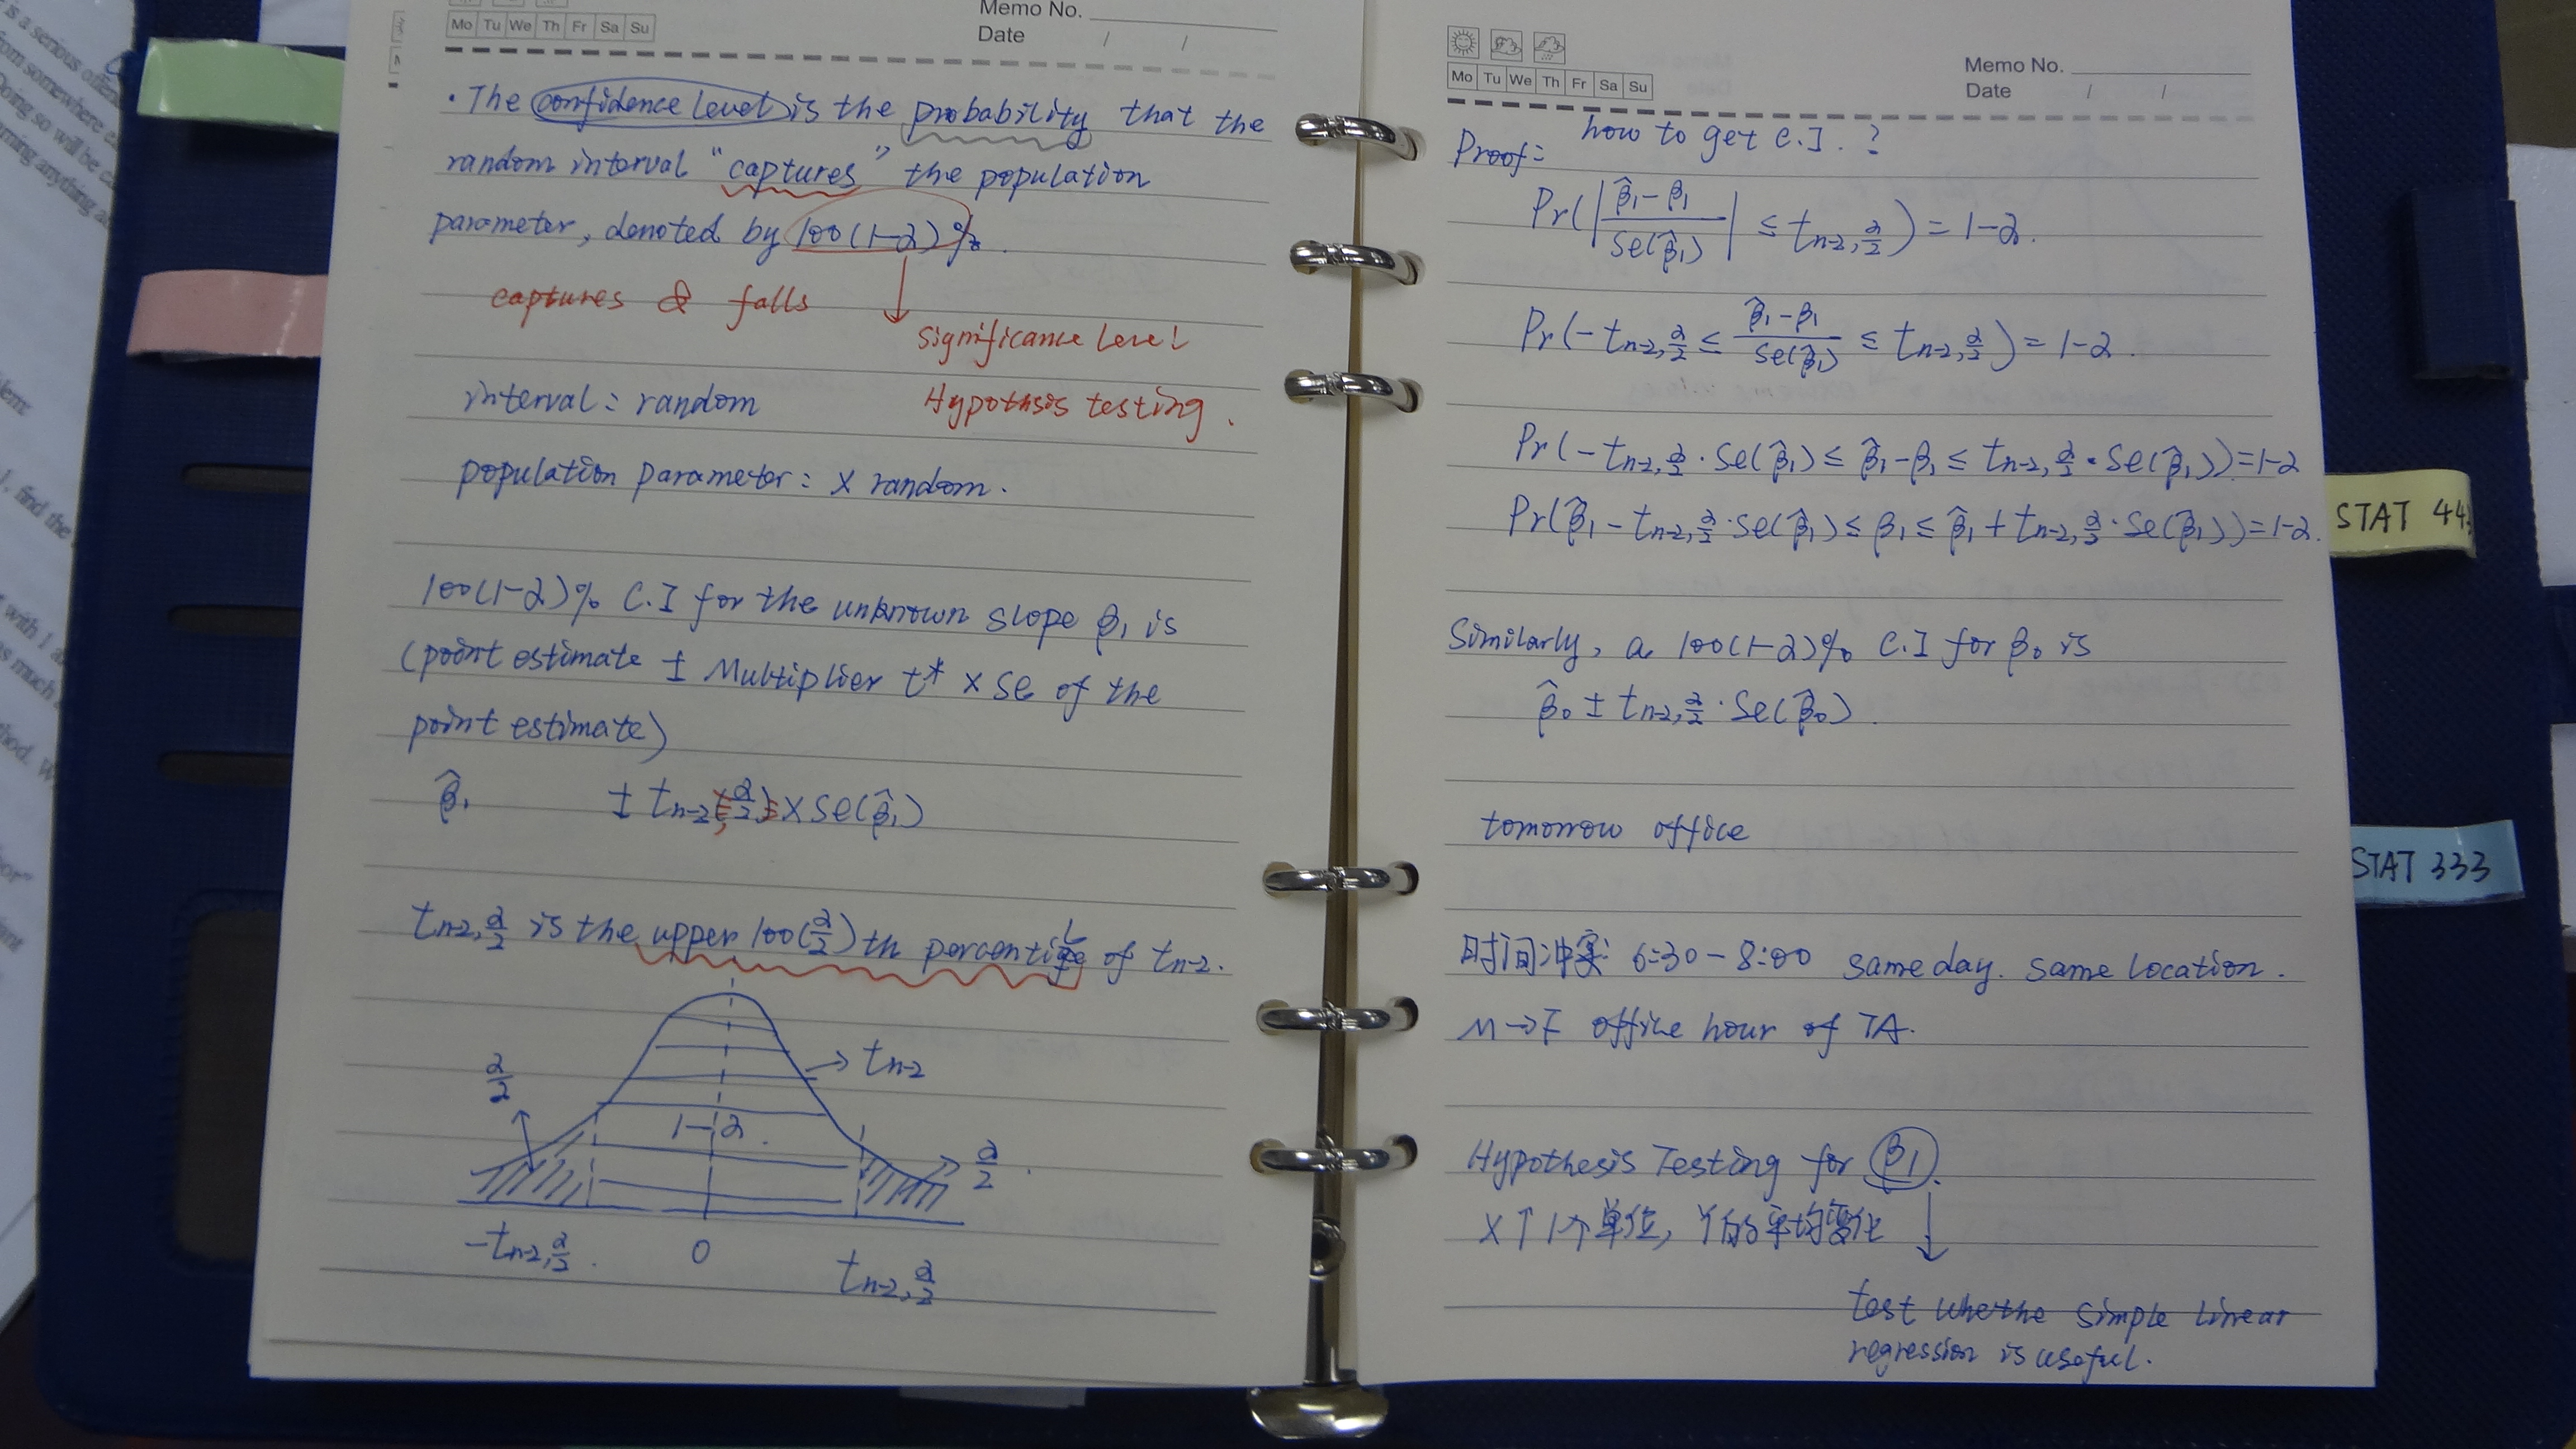 Memo No.
Mo Tu We Th Fr Sa Su
Date / /
· The confidence level is the probability that the
random interval "captures" the population
parameter, denoted by 100(1-α)%.
captures & falls
significance level
interval: random
Hypothsis testing.
population parameter: × random.
100(1-α)% C.I for the unknown slope β₁ is
(point estimate ± Multiplier t* × se of the
point estimate)
β̂₁ ± tn-2,(α/2) × se(β̂₁)
tn-2,α/2 is the upper 100(α/2)th percentile of tn-2.
tn-2
α/2
1-α.
α/2.
-tn-2,α/2.
0
tn-2,α/2
Memo No.
Mo Tu We Th Fr Sa Su
Date / /
how to get C.I.?
Proof:
Pr(|(β̂₁-β₁)/se(β̂₁)| ≤ tn-2,α/2) = 1-α.
Pr(-tn-2,α/2 ≤ (β̂₁-β₁)/se(β̂₁) ≤ tn-2,α/2) = 1-α.
Pr(-tn-2,α/2 · se(β̂₁) ≤ β̂₁-β₁ ≤ tn-2,α/2 · se(β̂₁)) = 1-α
Pr(β̂₁ - tn-2,α/2 · se(β̂₁) ≤ β₁ ≤ β̂₁ + tn-2,α/2 · se(β̂₁)) = 1-α.
Similarly, a 100(1-α)% C.I for β₀ is
β̂₀ ± tn-2,α/2 · se(β̂₀).
tomorrow office
时间冲突: 6:30-8:00 same day. same location.
M→F office hour of TA.
Hypothesis Testing for β₁.
X↑1个单位, Y的平均变化
test whethe simple linear
regression is useful.
STAT 44
STAT 333
is a serious offen
from somewhere e
Doing so will be ca
, find the
with 1 a
as much